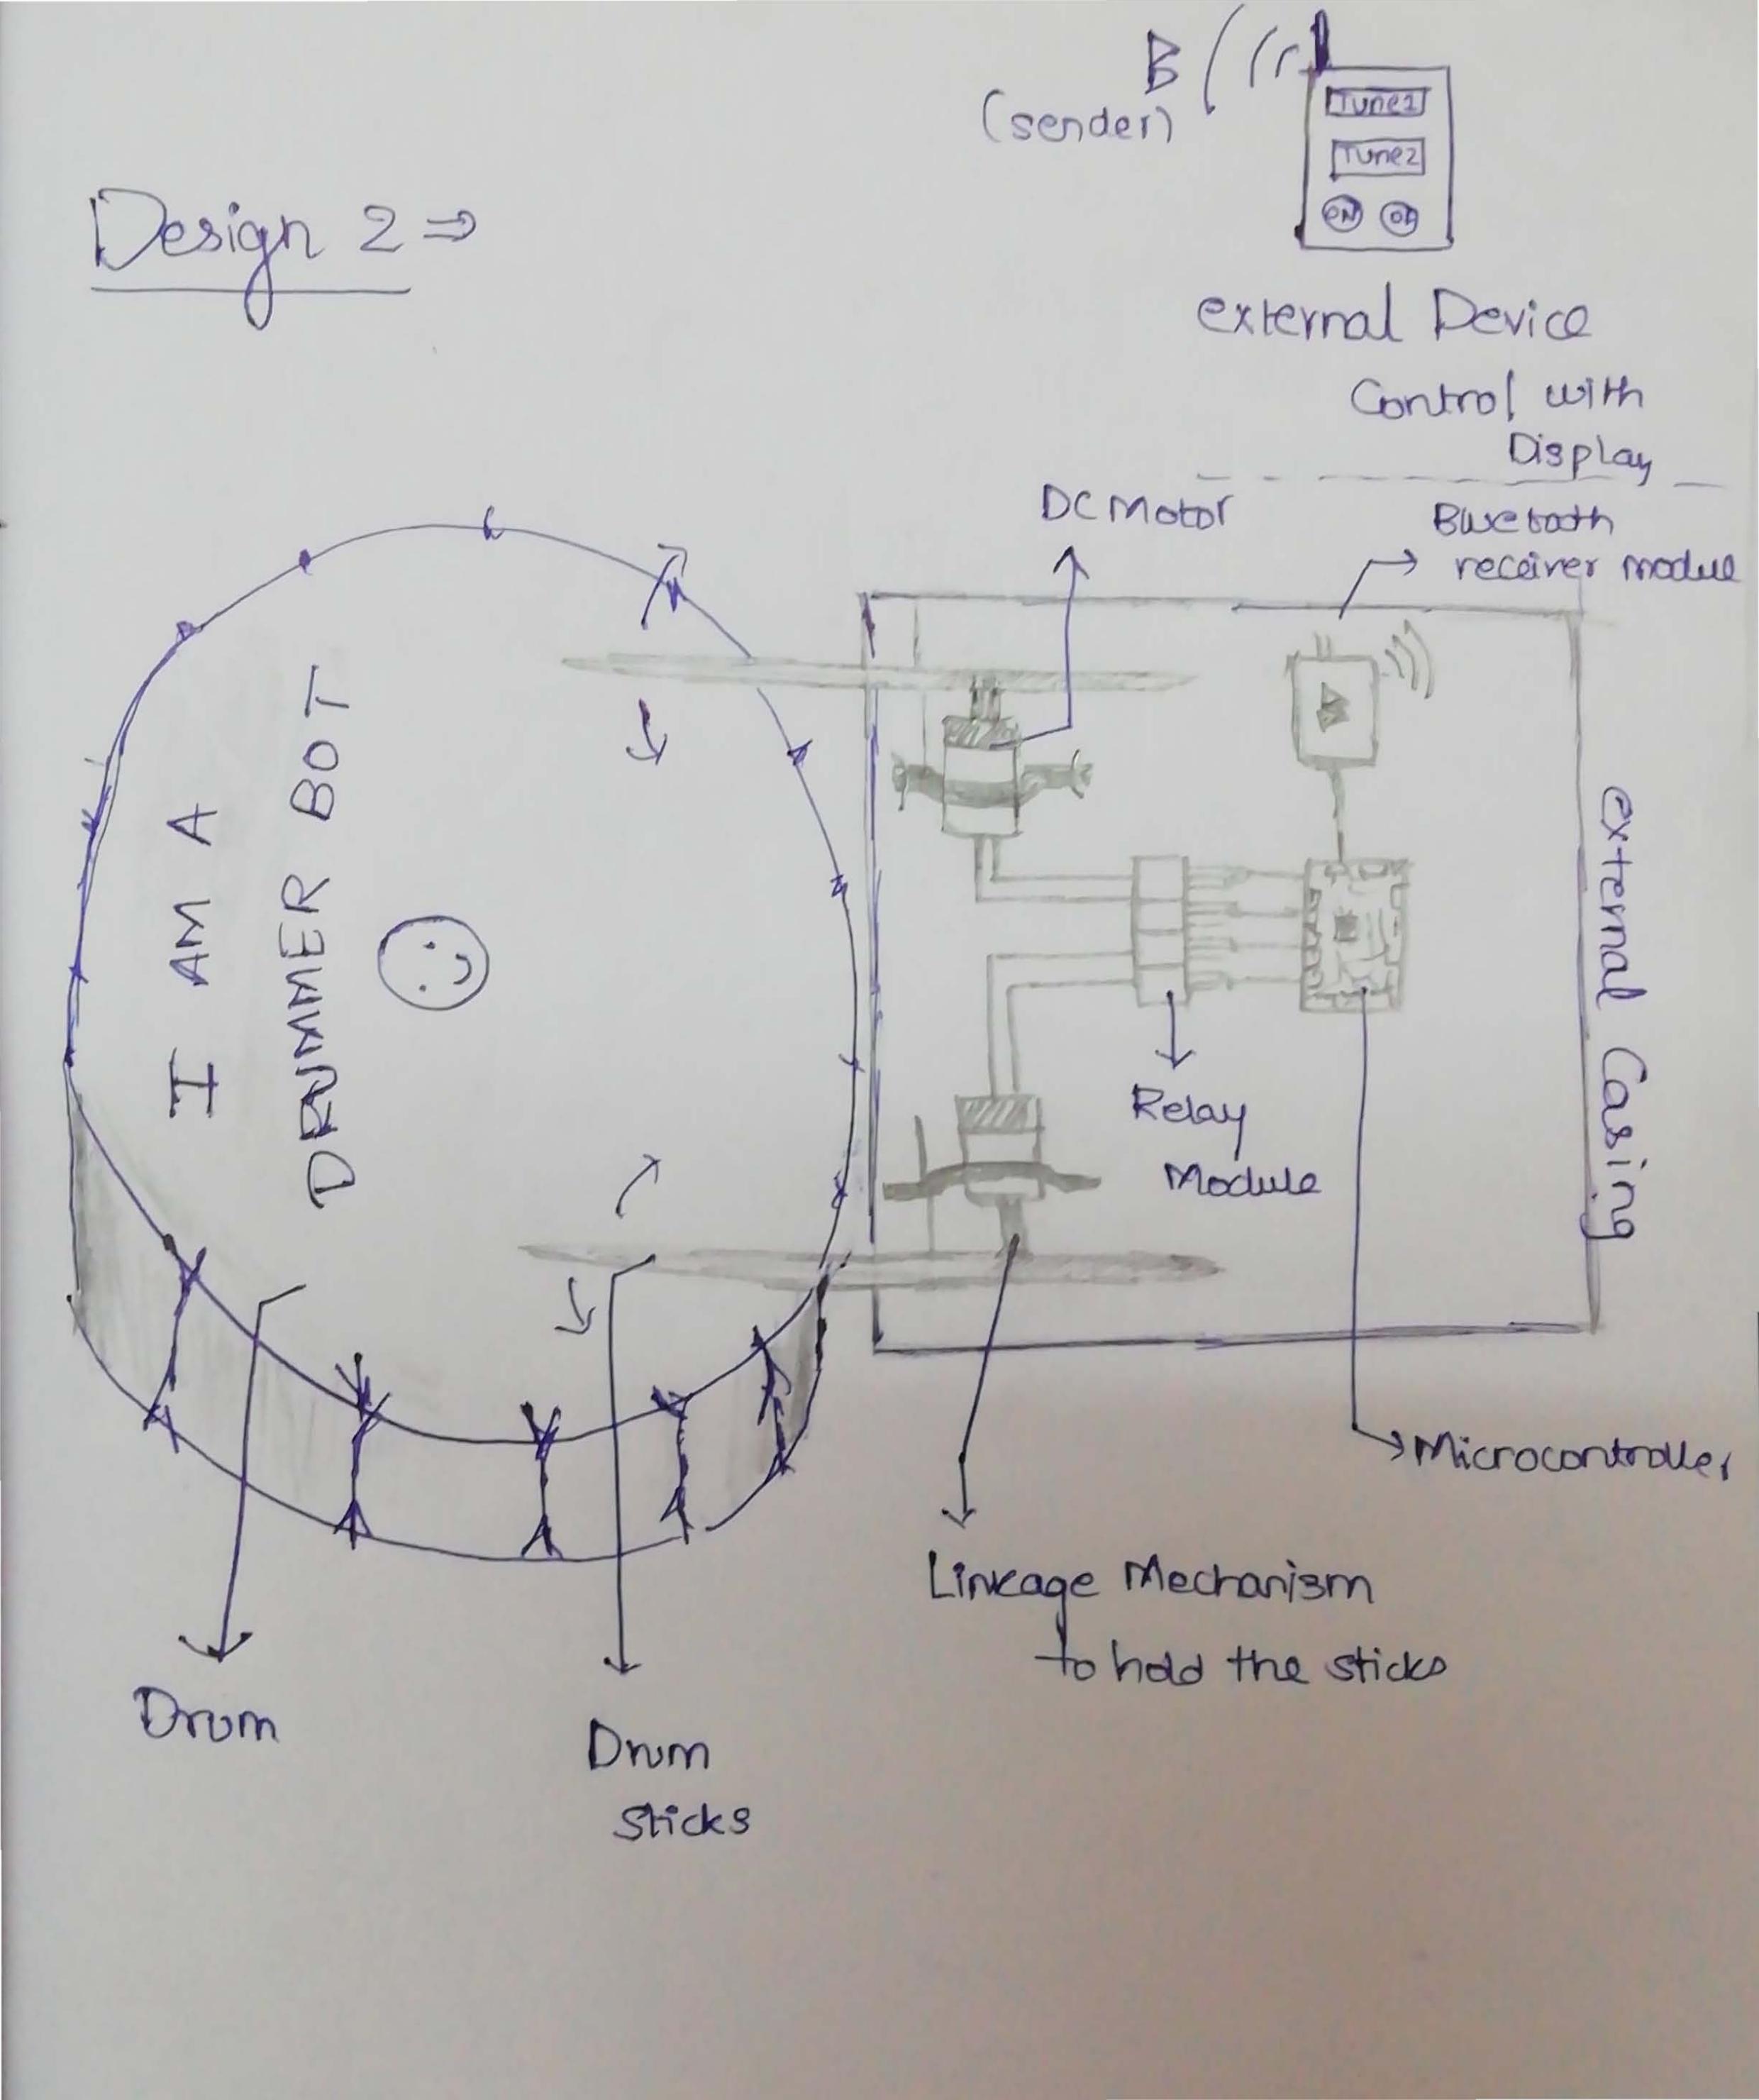 B
(sender)
Tune1
Tune2
ON
Design 2 ⇒
external Device
Control with
Display
DC Motor
Bluetooth
receiver module
I AM A
DRUMMER BOT
external Casing
Relay
Module
Microcontroller
Linkage Mechanism
to hold the sticks
Drum
Drum
Sticks